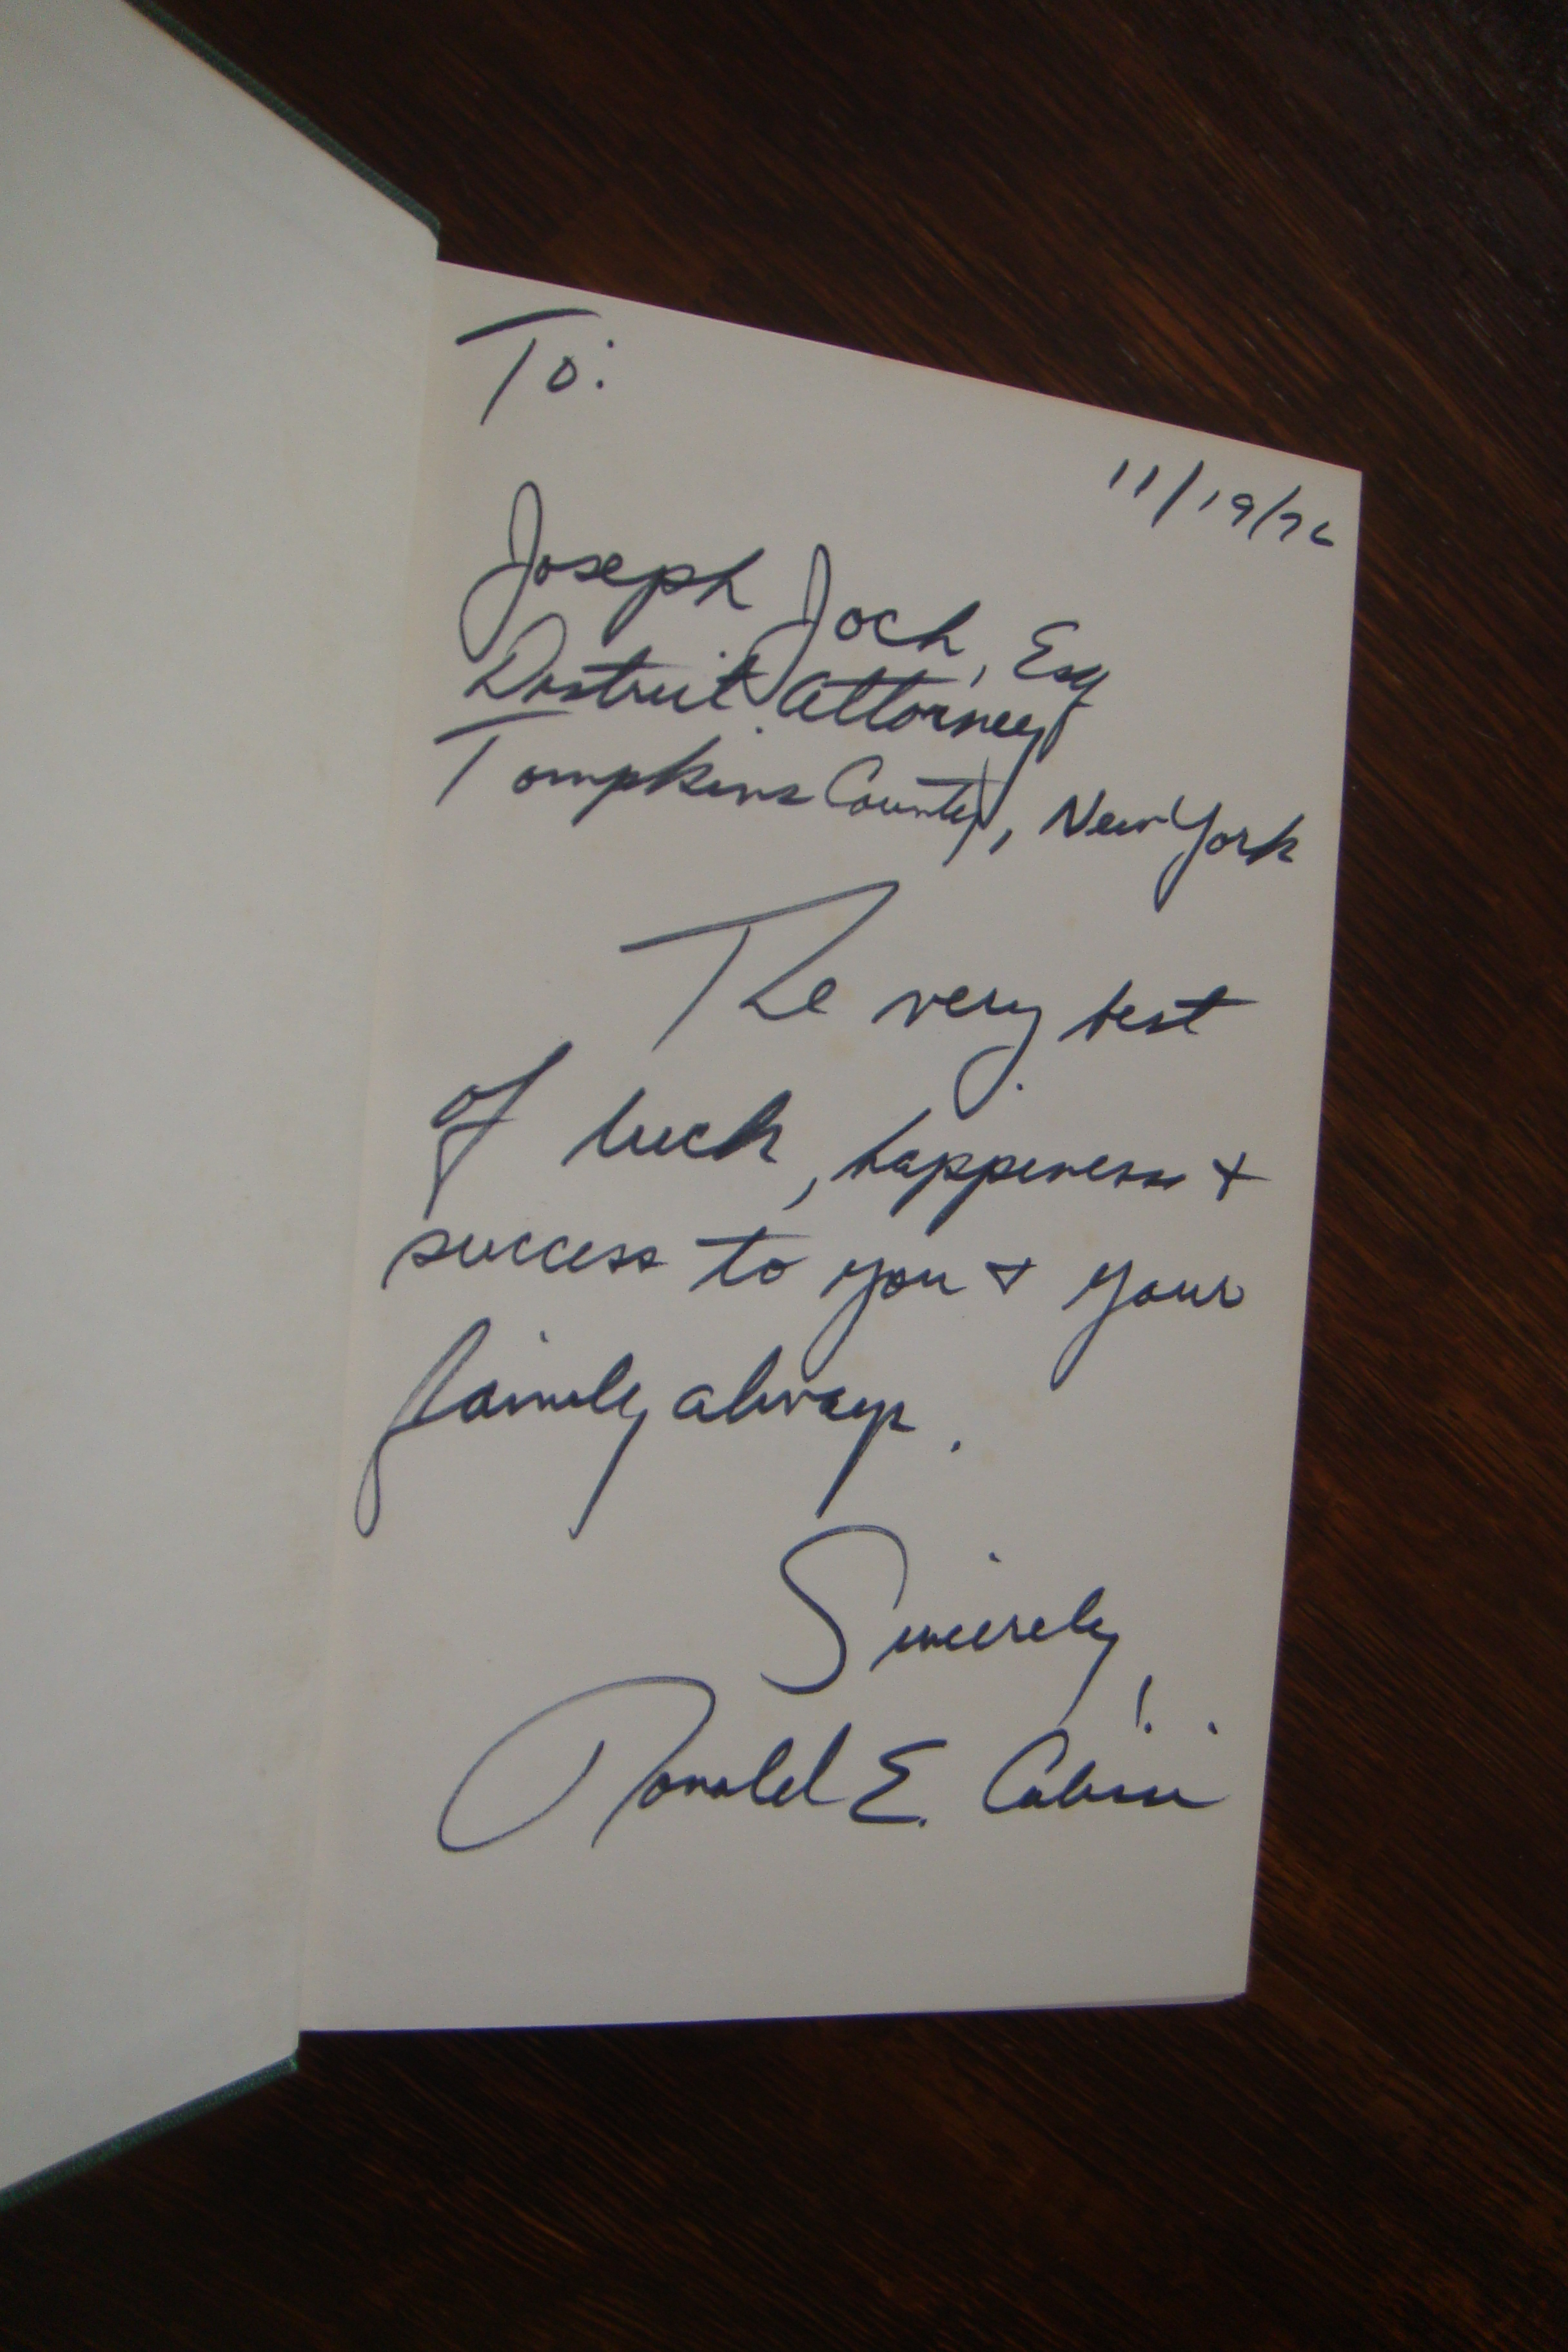 To:
11/19/76
Joseph Joch, Esq
District Attorney
Tompkins County, New York
The very best
of luck, happiness +
success to you + your
family always.
Sincerely,
Ronald E.